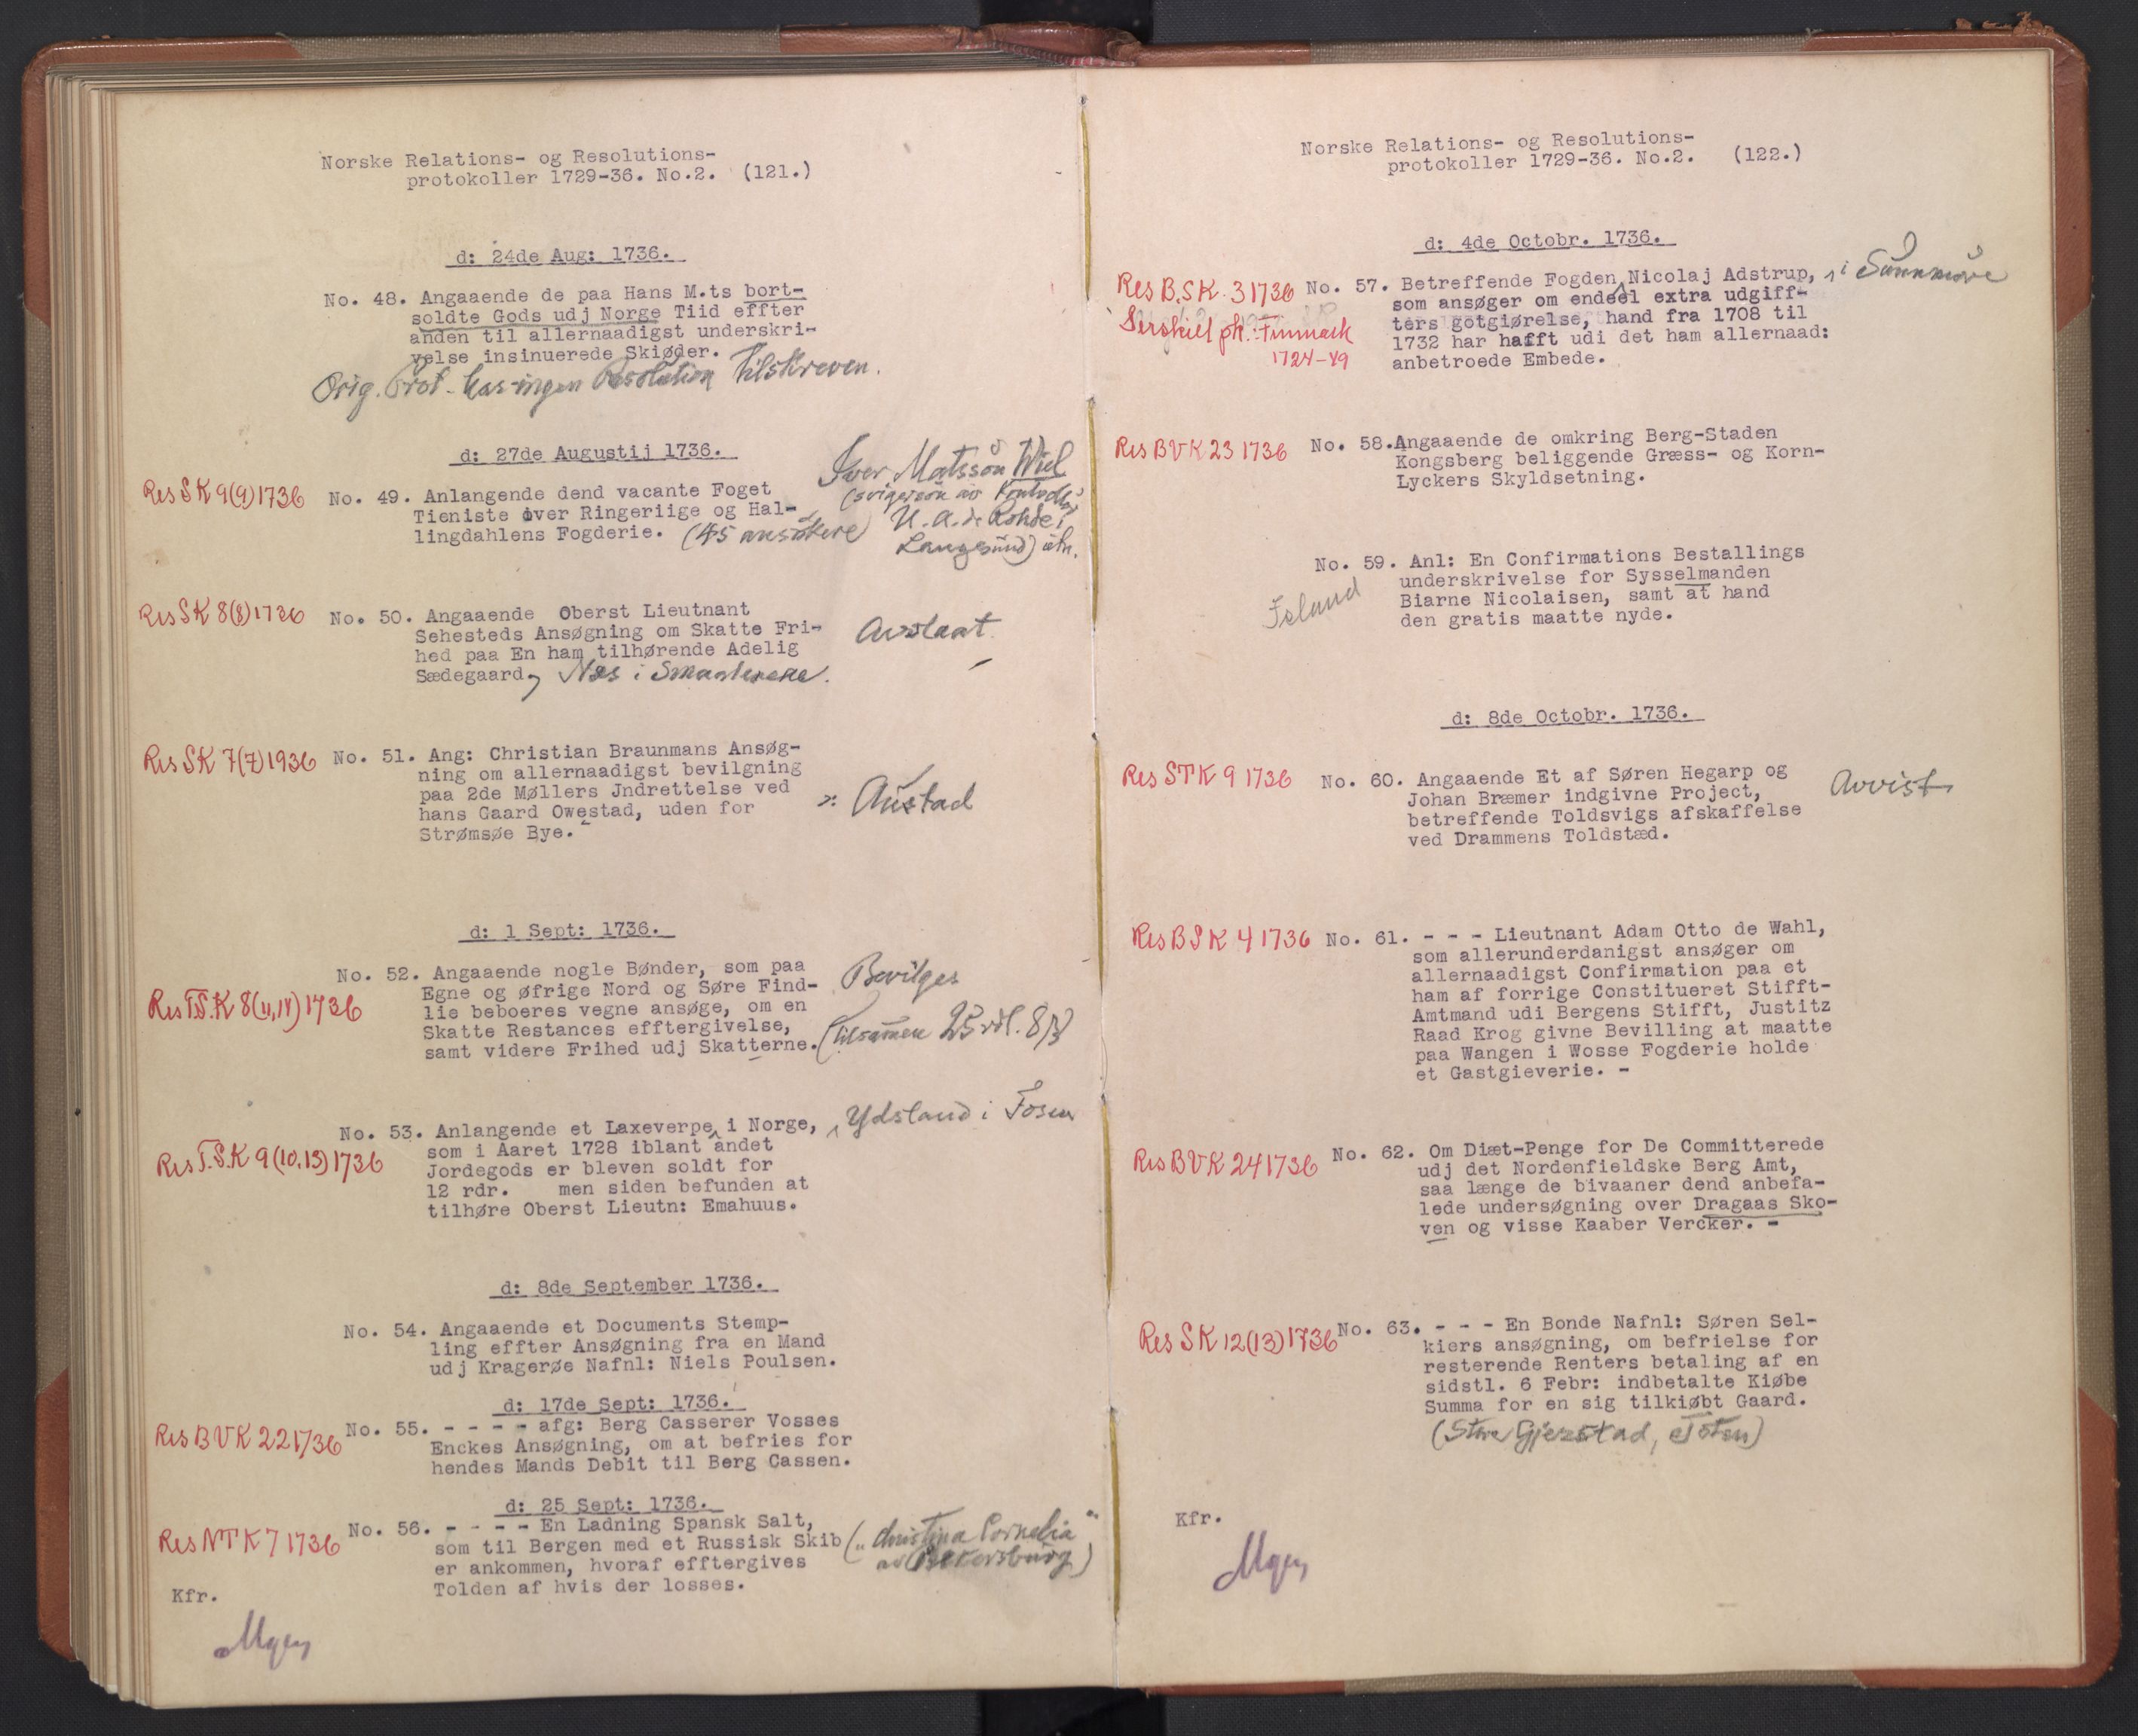 Norske Relations- og Resolutions-
protokoller 1729-36. No.2. (121.)
d: 24de Aug: 1736.
No. 48. Angaaende de paa Hans M.ts bort-
soldte Gods udj Norge Tiid effter
anden til allernaadigst underskri-
velse insinuerede Skiøder.
Orig. Prot. har ingen Resolution tilskreven.
d: 27de Augustij 1736.
Res SK 9(9) 1736 No. 49. Anlangende dend vacante Foget
Tieniste over Ringeriige og Hal-
lingdahlens Fogderie. (45 ansökere)
Iver Matssön Wiel
(svigersön av
U. A. de Rohde i
Langesund) utn.
Res SK 8(8) 1736 No. 50. Angaaende Oberst Lieutnant
Sehesteds Ansøgning om Skatte Fri-
hed paa En ham tilhørende Adelig
Sædegaard, Næs i Smaalenene.
Avslaat.
Res SK 7(7) 1936 No. 51. Ang: Christian Braunmans Ansøg-
ning om allernaadigst bevilgning
paa 2de Møllers Jndrettelse ved
hans Gaard Owestad, uden for
Strømsøe Bye.
ɔ: Austad
d: 1 Sept: 1736.
No. 52. Angaaende nogle Bønder, som paa
Egne og øfrige Nord og Søre Find-
Res T.S.K 8(11,14) 1736 lie beboeres vegne ansøge, om en
Skatte Restances efftergivelse,
samt videre Frihed udj Skatterne.
Bevilges
(tilsamen 25 rdl. 8 ß)
No. 53. Anlangende et Laxeverpe i Norge, Ydsland i Fosen
som i Aaret 1728 iblant andet
Res T.S.K 9(10,13) 1736 Jordegods er bleven soldt for
12 rdr. men siden befunden at
tilhøre Oberst Lieutn: Emahuus.
d: 8de September 1736.
No. 54. Angaaende et Documents Stemp-
ling effter Ansøgning fra en Mand
udj Kragerøe Nafnl: Niels Poulsen.
d: 17de Sept: 1736.
Res BVK 22 1736 No. 55. - - - - afg: Berg Casserer Vosses
Enckes Ansøgning, om at befries for
hendes Mands Debit til Berg Cassen.
d: 25 Sept: 1736.
Res NTK 7 1736 No. 56. - - - - En Ladning Spansk Salt,
som til Bergen med et Russisk Skib
er ankommen, hvoraf efftergives
Tolden af hvis der losses.
("Christina Cornelia"
av Petersburg)
Kfr.
Norske Relations- og Resolutions-
protokoller 1729-36. No.2. (122.)
d: 4de Octobr. 1736.
Res B.SK. 3 1736 No. 57. Betreffende Fogden Nicolaj Adstrup, i Sunnmöre
som ansøger om endeel extra udgiff-
ters gotgiørelse, hand fra 1708 til
1732 har hafft udi det ham allernaad:
anbetroede Embede.
Særskilt pk.: Finmark
1724-49
Res BVK 23 1736 No. 58. Angaaende de omkring Berg-Staden
Kongsberg beliggende Græss- og Korn-
Lyckers Skyldsetning.
No. 59. Anl: En Confirmations Bestallings
underskrivelse for Sysselmanden
Biarne Nicolaisen, samt at hand
den gratis maatte nyde.
Island
d: 8de Octobr. 1736.
Res STK 9 1736 No. 60. Angaaende Et af Søren Hegarp og
Johan Bræmer indgivne Project,
betreffende Toldsvigs afskaffelse
ved Drammens Toldstæd.
Avvist
Res BSK 4 1736 No. 61. - - - Lieutnant Adam Otto de Wahl,
som allerunderdanigst ansøger om
allernaadigst Confirmation paa et
ham af forrige Constitueret Stifft-
Amtmand udi Bergens Stifft, Justitz
Raad Krog givne Bevilling at maatte
paa Wangen i Wosse Fogderie holde
et Gastgieverie. -
Res BVK 24 1736 No. 62. Om Diæt-Penge for De Committerede
udj det Nordenfieldske Berg Amt,
saa længe de bivaaner dend anbefa-
lede undersøgning over Dragaas Sko-
ven og visse Kaaber Vercker. -
Res SK 12(13) 1736 No. 63. - - - En Bonde Nafnl: Søren Sel-
kiers ansøgning, om befrielse for
resterende Renters betaling af en
sidstl. 6 Febr: indbetalte Kiøbe
Summa for en sig tilkiøbt Gaard.
(Store Gjerstad, Toten)
Kfr.